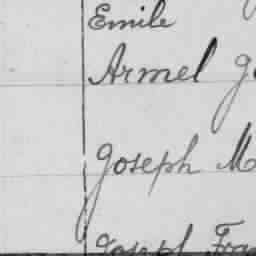 Emile
Armel Jo
Joseph M
Joseph Fra